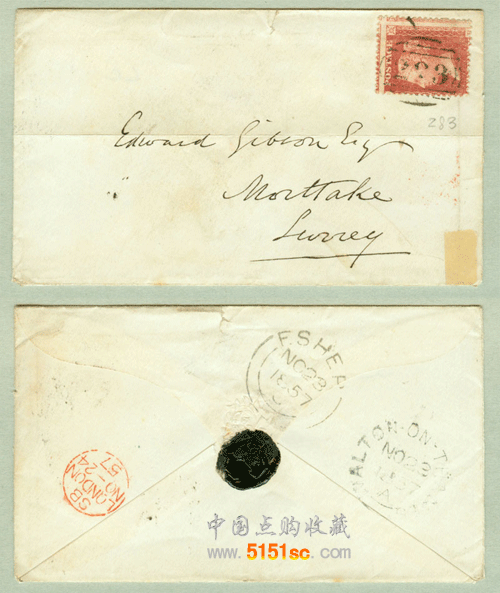 POSTAGE
283
Edward Gibson Esq
Mortlake
Surrey
ESHER
NO 23
1857
WALTON-ON-T
NO 23
SB
LONDON
NO-24
57
中国点购收藏
www.5151sc.com